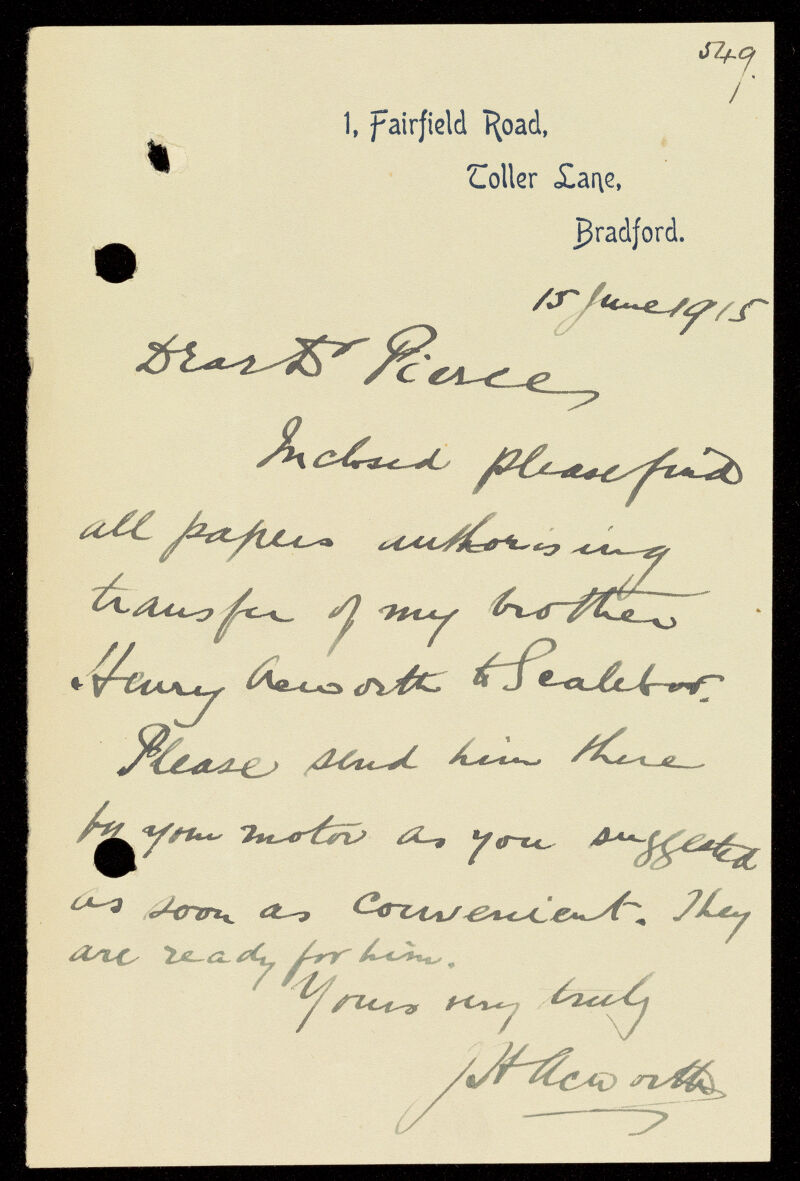 549.
1, Fairfield Road,
Toller Lane,
Bradford.
15 June 1915
Dear Dr Pierce
Inclosed please find
all papers authorising
transfer of my brother
Henry Acworth to Scalebor.
Please send him there
by your motor as you suggested
as soon as convenient. They
are ready for him.
Yours very truly
J H Acworth